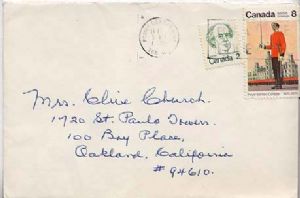 Canada 8
Canada
Mrs. Clive Church.
1720 St. Paulo Towers.
100 Bay Place,
Oakland, California
# 94610.